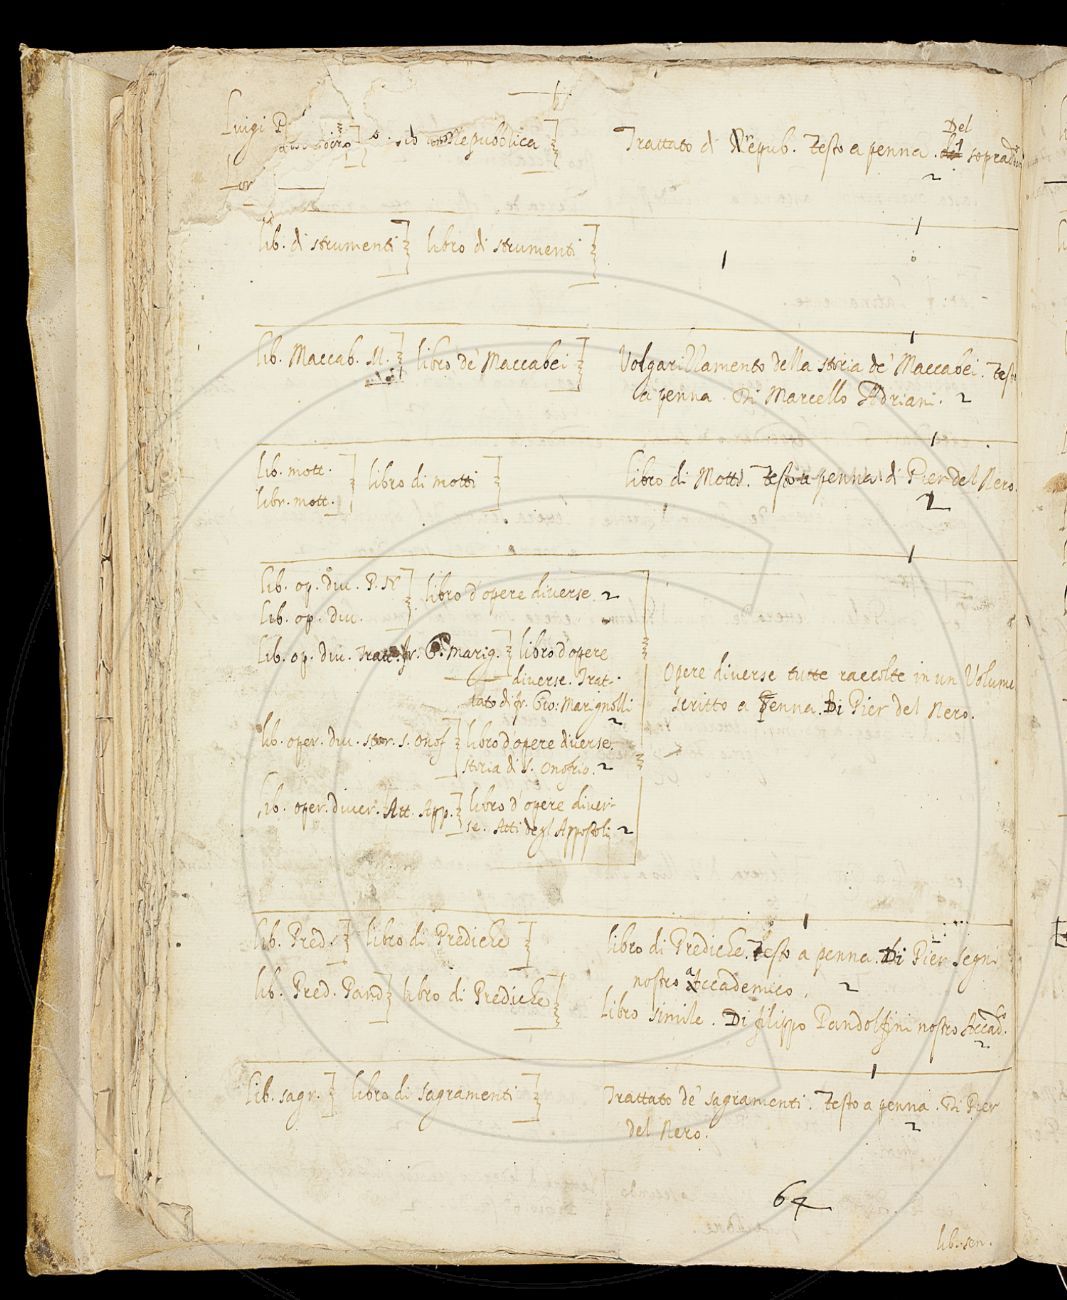 Luigi P
Repubblica
Trattato di Repub. Testo a penna. Del soprad.
lib. di strumenti
libro di strumenti
lib. Maccab. M.
libro de' Maccabei
Volgarizzamento della storia de' Maccabei. Testo
a penna. Di Marcello Adriani. 2
lib. mott.
libr. mott.
libro di motti
libro di Motti. Testo a penna di Pier del Nero.
2
lib. op. div. P. N
lib. op. div.
libro d'opere diverse. 2
lib. op. div. Tratt. fr. G. Marig.
libro d'opere
diverse. Trat-
tato di fr. Gio: Marignolli
2
lib. oper. div. stor. S. Onof
libro d'opere diverse.
storia di S. Onofrio. 2
lib. oper. diver. Att. App.
libro d'opere diver-
se. Atti degl'Appostoli 2
Opere diverse tutte raccolte in un Volume
scritto a Penna. Di Pier del Nero.
lib. Pred.
libro di Prediche
libro di Prediche. Testo a penna. Di Pier Segni
nostro Accademico. 2
lib. Pred. Pand
libro di Prediche
Libro simile. Di filippo Pandolfini nostro Accad.
2
lib. sagr.
libro di sagramenti
Trattato de' sagramenti. Testo a penna. Di Pier
del Nero. 2
64
lib. sen.